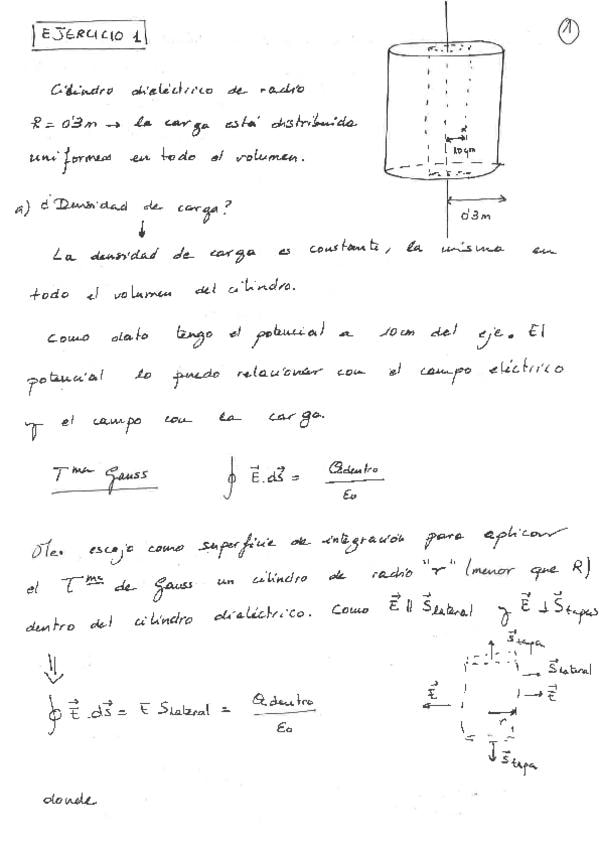 EJERCICIO 1
1
Cilindro dieléctrico de radio
R = 0'3m → la carga está distribuida
uniformem en todo el volumen.
10 cm
0'3 m
a) ¿Densidad de carga?
↓
La densidad de carga es constante, la misma en
todo el volumen del cilindro.
Como dato tengo el potencial a 10cm del eje. El
potencial lo puedo relacionar con el campo eléctrico
y el campo con la carga.
Tma Gauss ∮ E⃗.dS⃗ = Qdentro / ε0
escojo como superficie de integración para aplicar
el Tma de Gauss un cilindro de radio "r" (menor que R)
dentro del cilindro dieléctrico. Como E⃗ ∥ S⃗lateral y E⃗ ⊥ S⃗tapas
⇓
S⃗tapa
S⃗lateral
E⃗
E⃗
r
S⃗tapa
∮ E⃗.dS⃗ = E Slateral = Qdentro / ε0
donde